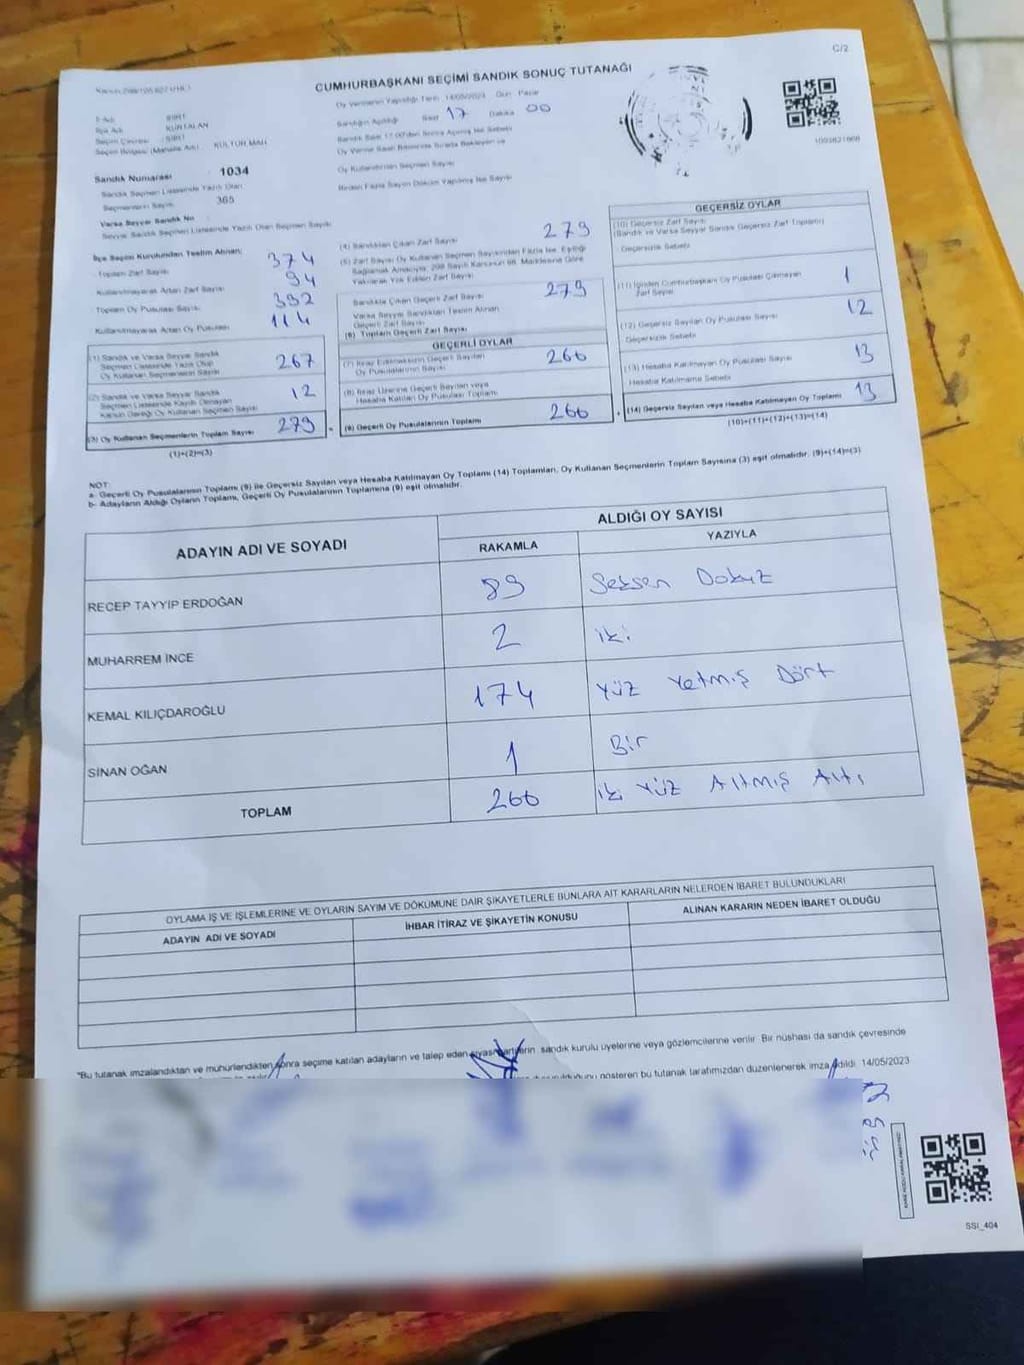 C/2
CUMHURBAŞKANI SEÇİMİ SANDIK SONUÇ TUTANAĞI
Oy Vermenin Yapıldığı Tarih 14/05/2023 Gün Pazar
Sandığın Açıldığı Saat 17 Dakika 00
İli Adı SİİRT
İlçe Adı KURTALAN
Seçim Çevresi SİİRT
Seçim Bölgesi (Mahalle Adı) KÜLTÜR MAH.
Sandık Numarası 1034
Sandık Seçmen Listesinde Yazılı Olan
Seçmenlerin Sayısı 365
Varsa Seyyar Sandık No
Seyyar Sandık Seçmen Listesinde Yazılı Olan Seçmen Sayısı
Oy Kullandırılan Seçmen Sayısı
Birden Fazla Sayım Döküm Yapılmış İse Sayısı
İlçe Seçim Kurulundan Teslim Alınan:
Toplam Zarf Sayısı 374
Kullanılmayarak Artan Zarf Sayısı 94
Toplam Oy Pusulası Sayısı 392
Kullanılmayarak Artan Oy Pusulası 114
(1) Sandık ve Varsa Seyyar Sandık
Seçmen Listesinde Yazılı Olup
Oy Kullanan Seçmenlerin Sayısı 267
(2) Sandık ve Varsa Seyyar Sandık
Seçmen Listesinde Kayıtlı Olmayan
Kanun Gereği Oy Kullanan Seçmen Sayısı 12
(3) Oy Kullanan Seçmenlerin Toplam Sayısı 279
(1)+(2)=(3)
(4) Sandıktan Çıkan Zarf Sayısı 279
(5) Zarf Sayısı Oy Kullanan Seçmen Sayısından Fazla İse, Eşitliği
Sağlamak Amacıyla, 298 Sayılı Kanunun 98. Maddesine Göre
Yakılarak Yok Edilen Zarf Sayısı
Sandıkta Çıkan Geçerli Zarf Sayısı 279
Varsa Seyyar Sandıktan Teslim Alınan
Geçerli Zarf Sayısı
(6) Toplam Geçerli Zarf Sayısı
GEÇERLİ OYLAR
(7) İtiraz Edilmeksizin Geçerli Sayılan
Oy Pusulalarının Sayısı 266
(8) İtiraz Üzerine Geçerli Sayılan veya
Hesaba Katılan Oy Pusulası Toplamı
(9) Geçerli Oy Pusulalarının Toplamı 266
GEÇERSİZ OYLAR
(10) Geçersiz Zarf Sayısı
(Sandık ve Varsa Seyyar Sandık Geçersiz Zarf Toplamı)
Geçersizlik Sebebi
(11) İçinden Cumhurbaşkanı Oy Pusulası Çıkmayan
Zarf Sayısı 1
(12) Geçersiz Sayılan Oy Pusulası Sayısı 12
Geçersizlik Sebebi
(13) Hesaba Katılmayan Oy Pusulası Sayısı 13
Hesaba Katılmama Sebebi
(14) Geçersiz Sayılan veya Hesaba Katılmayan Oy Toplamı 13
(10)+(11)+(12)+(13)=(14)
NOT:
a- Geçerli Oy Pusulalarının Toplamı (9) ile Geçersiz Sayılan veya Hesaba Katılmayan Oy Toplamı (14) Toplamları, Oy Kullanan Seçmenlerin Toplam Sayısına (3) eşit olmalıdır. (9)+(14)=(3)
b- Adayların Aldığı Oyların Toplamı, Geçerli Oy Pusulalarının Toplamına (9) eşit olmalıdır.
ADAYIN ADI VE SOYADI
ALDIĞI OY SAYISI
RAKAMLA YAZIYLA
RECEP TAYYİP ERDOĞAN 89 Seksen Dokuz
MUHARREM İNCE 2 iki
KEMAL KILIÇDAROĞLU 174 Yüz Yetmiş Dört
SİNAN OĞAN 1 Bir
TOPLAM 266 iki Yüz Altmış Altı
OYLAMA İŞ VE İŞLEMLERİNE VE OYLARIN SAYIM VE DÖKÜMÜNE DAİR ŞİKAYETLERLE BUNLARA AİT KARARLARIN NELERDEN İBARET BULUNDUKLARI
ADAYIN ADI VE SOYADI İHBAR İTİRAZ VE ŞİKAYETİN KONUSU ALINAN KARARIN NEDEN İBARET OLDUĞU
"Bu tutanak imzalandıktan ve mühürlendikten sonra seçime katılan adayların ve talep eden siyasi partilerin sandık kurulu üyelerine veya gözlemcilerine verilir. Bir nüshası da sandık çevresinde
gösteren bu tutanak tarafımızdan düzenlenerek imza edildi. 14/05/2023
SSI_404